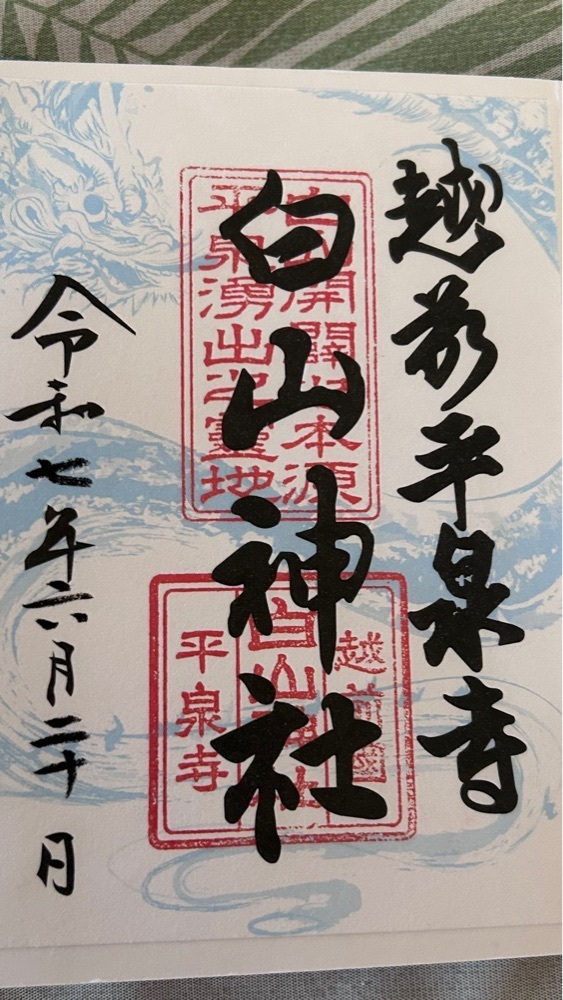 越前平泉寺
白山神社
令和七年六月二十日
白山開闢本源
平泉湧出之靈地
越前國
白山神社
平泉寺